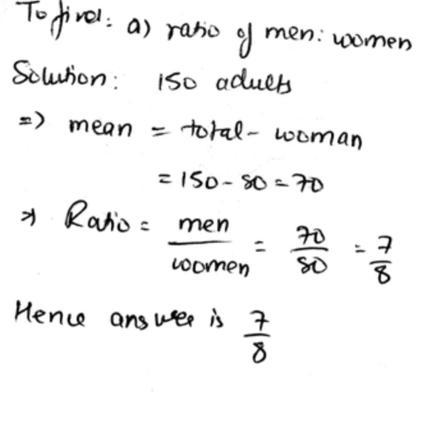 To find: a) ratio of men: women
Solution: 150 adults
=> mean = total - woman
= 150 - 80 = 70
=> Ratio = men/women = 70/80 = 7/8
Hence answer is 7/8